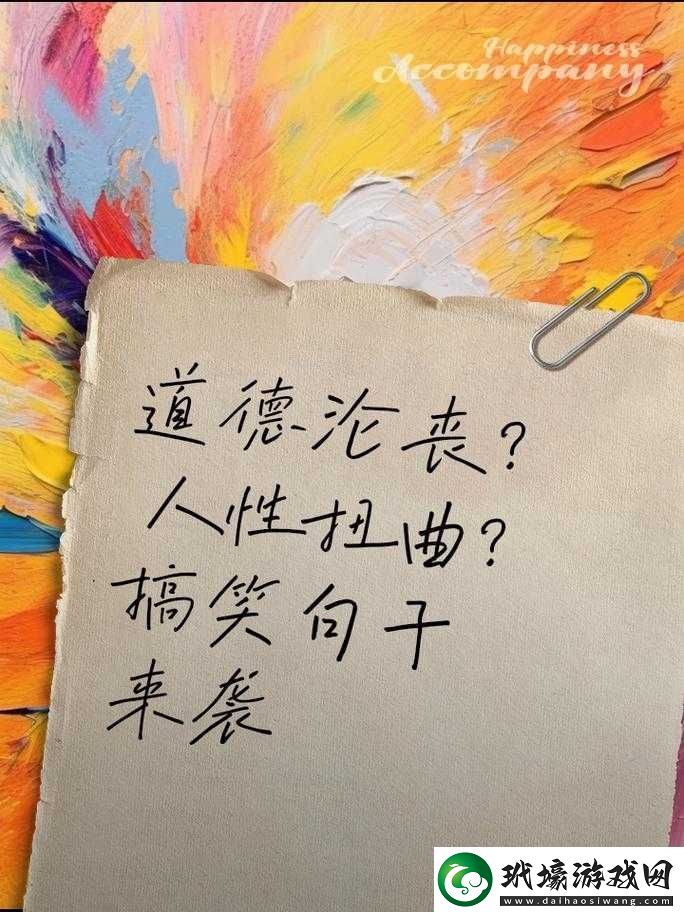 Happiness
Accompany
道德沦丧?
人性扭曲?
搞笑句子
来袭
玳壕游戏网
www.daihaosiwang.com